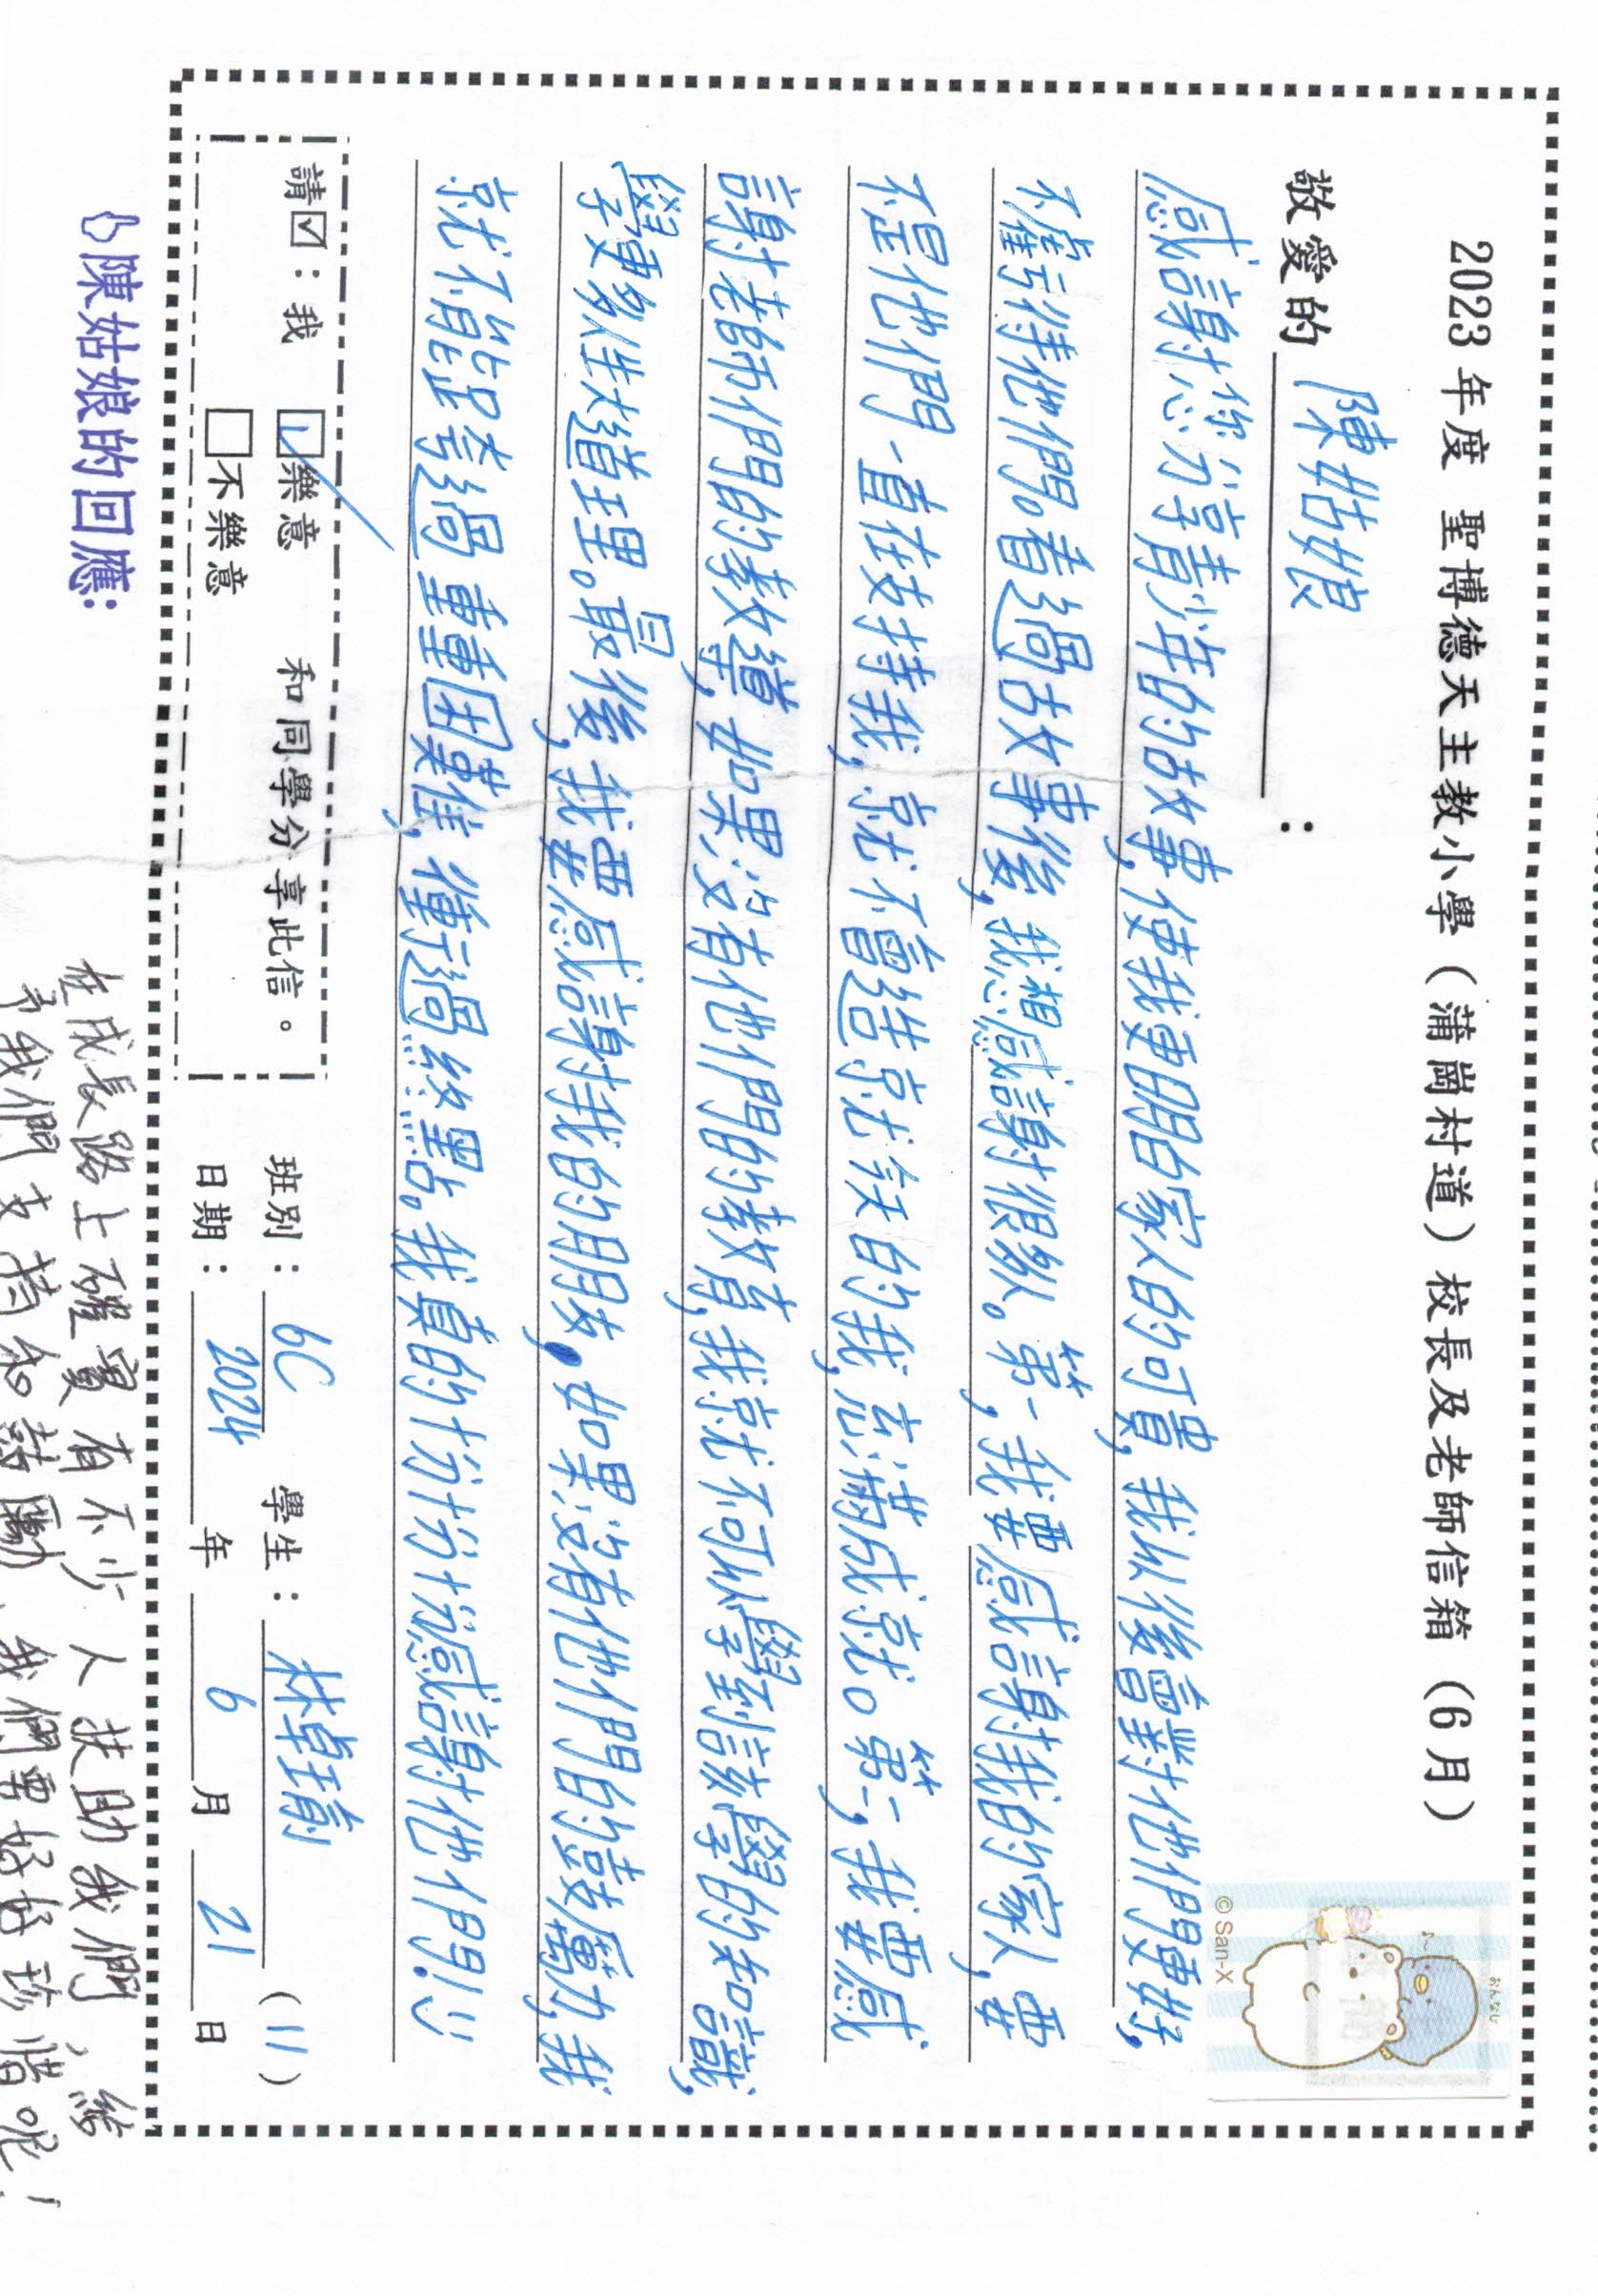 2023 年度 聖博德天主教小學（蒲崗村道）校長及老師信箱（6 月）
おんなじ
© San-X
敬愛的 陳姑娘 ：
感謝您分享青少年的故事,使我更明白家人的可貴,我以後會對他們更好,
珍惜他們。看過故事後,我想感謝很多人。第一,我要感謝我的家人,要
不是他們一直在支持我,就不會造就今天的我,充滿成就。第二,我要感
謝老師們的教導,如果沒有他們的教育,我就不可以學到該學的知識,
學更多人生大道理。最後,我要感謝我的朋友,如果沒有他們的鼓勵,我
就不能跨過重重困難,衝過終點。我真的十分十分十分感謝他們!
請☑：我 ☑樂意 和同學分享此信。
□不樂意
班別： 6C 學生： (11)
日期： 2024 年 6 月 21 日
陳姑娘的回應:
在成長路上確實有不少人扶助我們、給
予我們支持和鼓勵,我們要好好珍惜呢!